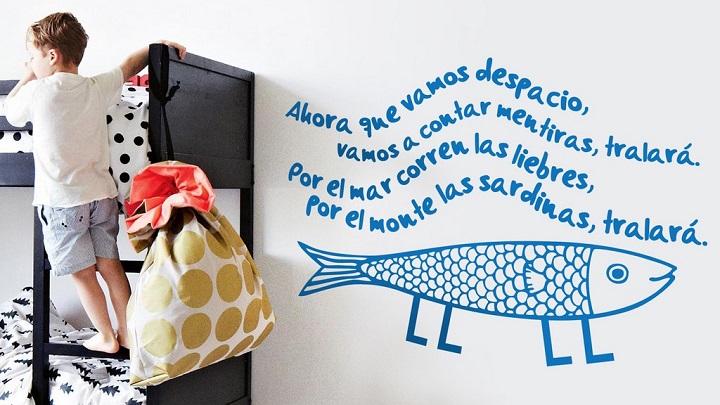 Ahora que vamos despacio,
vamos a contar mentiras, tralará.
Por el mar corren las liebres,
por el monte las sardinas, tralará.